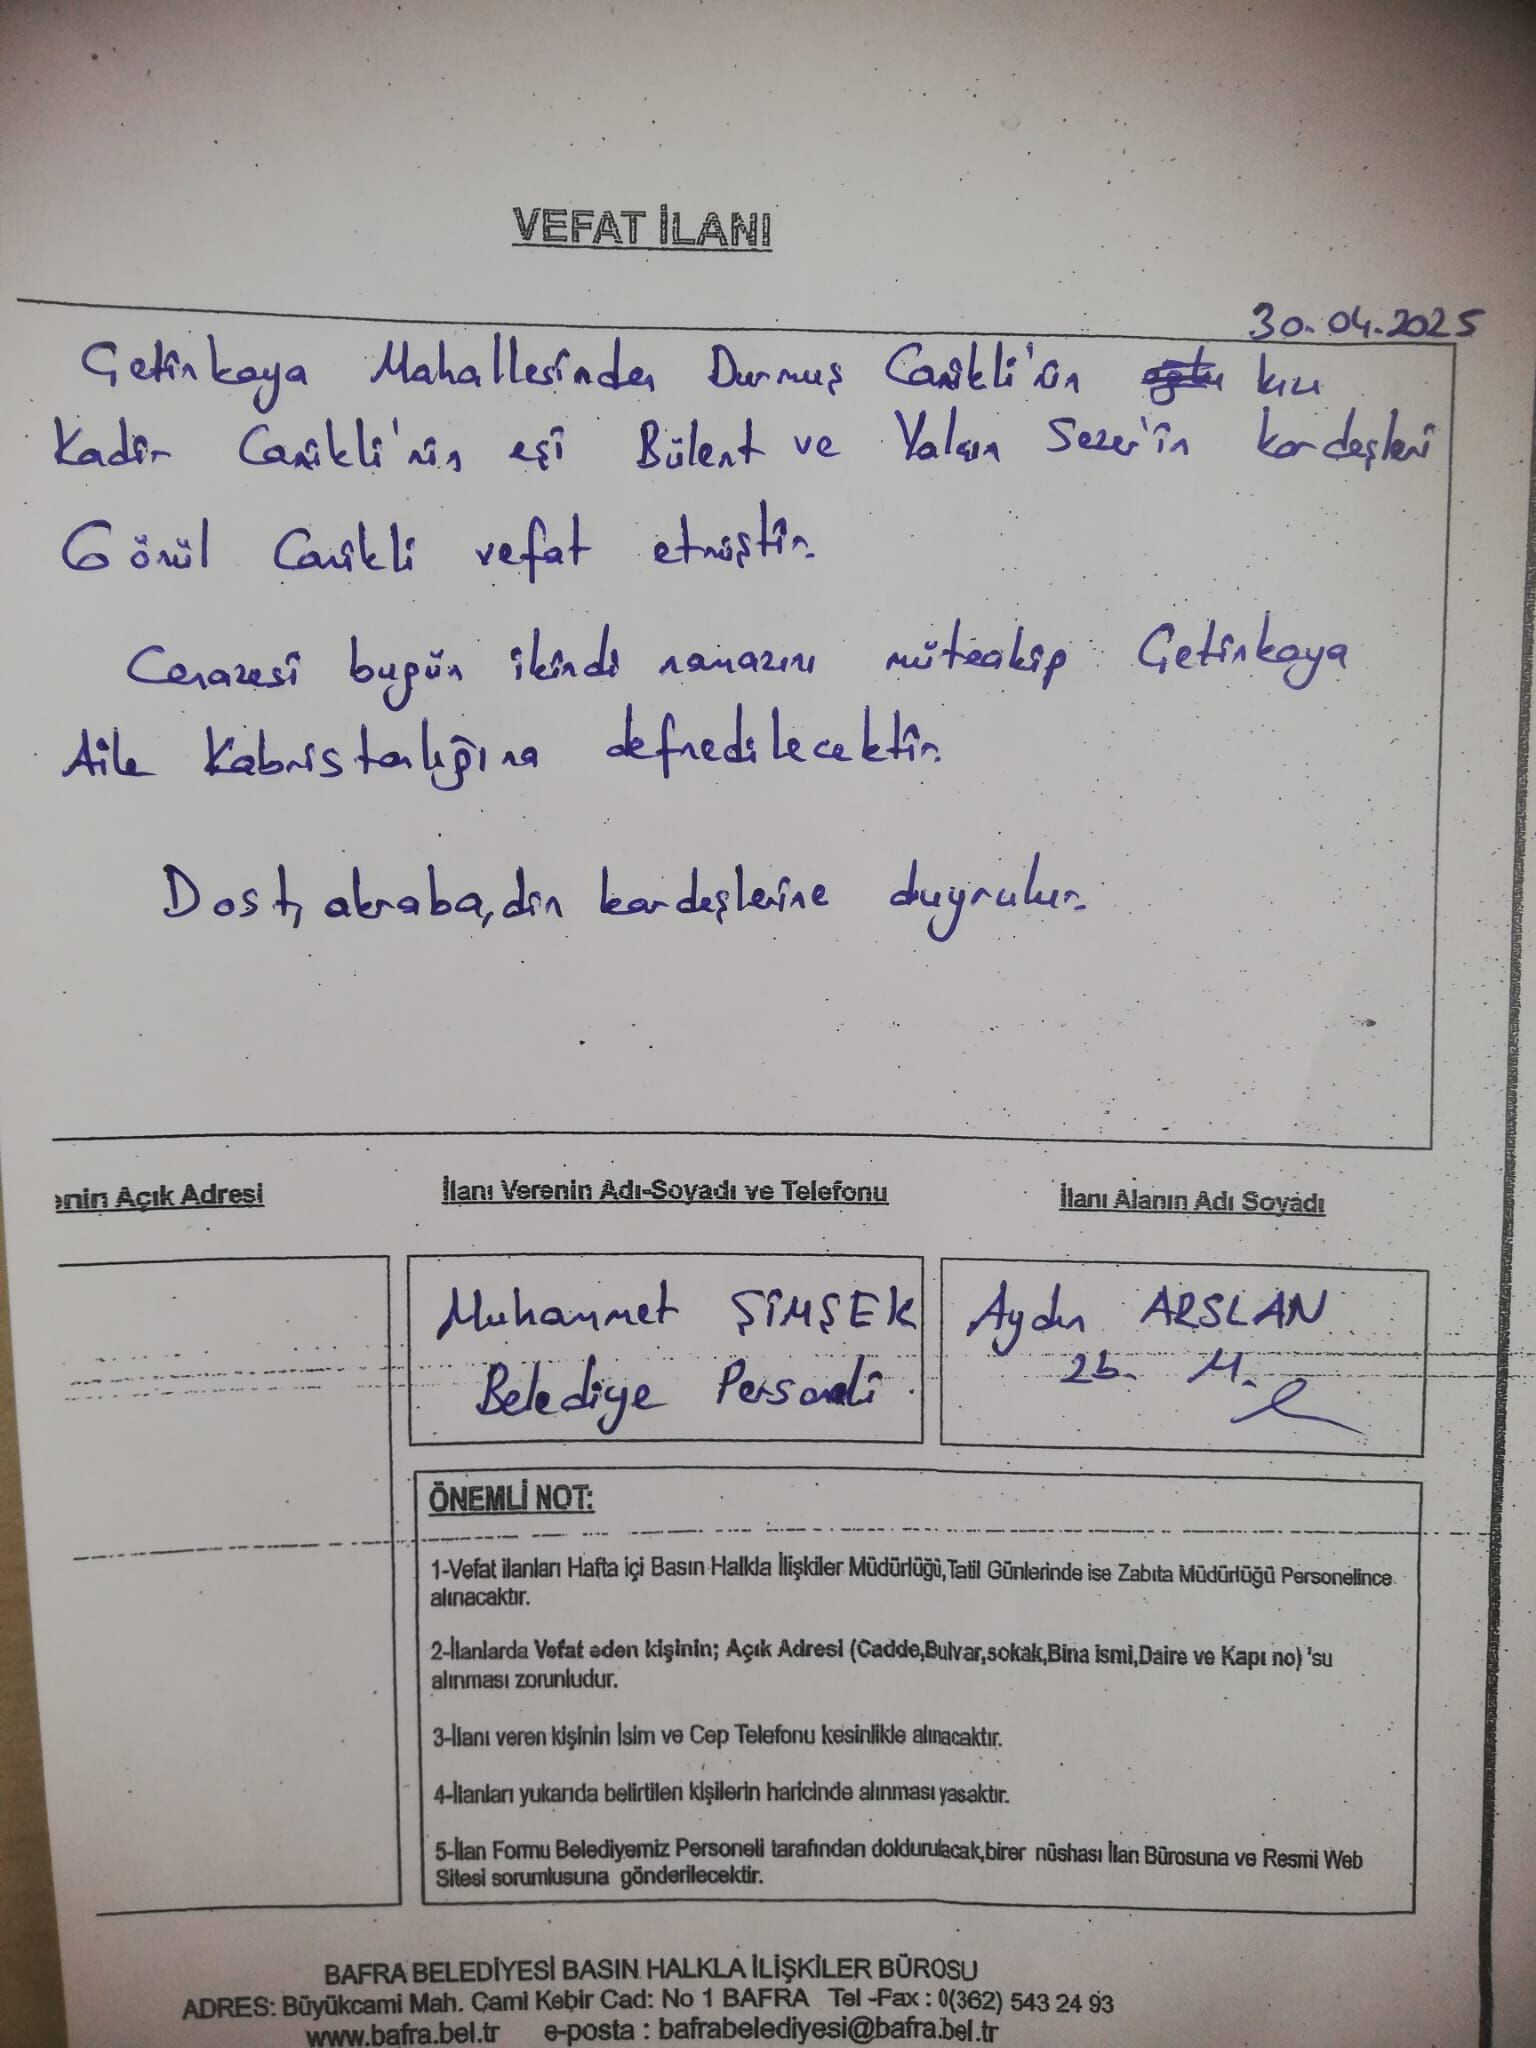 VEFAT İLANI
30.04.2025
Çetinkaya Mahallesinden Durmuş Canikli'nin kızı
Kadir Canikli'nin eşi Bülent ve Yalçın Sezer'in kardeşleri
Gönül Canikli vefat etmiştir.
Cenazesi bugün ikindi namazını müteakip Çetinkaya
Aile Kabristanlığına defnedilecektir.
Dost, akraba, din kardeşlerine duyrulur.
enin Açık Adresi
İlanı Verenin Adı-Soyadı ve Telefonu
İlanı Alanın Adı Soyadı
Muhammet ŞİMŞEK
Belediye Personeli
Aydın ARSLAN
Zb. M.
ÖNEMLİ NOT:
1-Vefat ilanları Hafta içi Basın Halkla İlişkiler Müdürlüğü,Tatil Günlerinde ise Zabıta Müdürlüğü Personelince
alınacaktır.
2-İlanlarda Vefat eden kişinin; Açık Adresi (Cadde,Bulvar,sokak,Bina ismi,Daire ve Kapı no) 'su
alınması zorunludur.
3-İlanı veren kişinin İsim ve Cep Telefonu kesinlikle alınacaktır.
4-İlanları yukarıda belirtilen kişilerin haricinde alınması yasaktır.
5-İlan Formu Belediyemiz Personeli tarafından doldurulacak,birer nüshası İlan Bürosuna ve Resmi Web
Sitesi sorumlusuna gönderilecektir.
BAFRA BELEDİYESİ BASIN HALKLA İLİŞKİLER BÜROSU
ADRES: Büyükcami Mah. Cami Kebir Cad: No 1 BAFRA Tel -Fax : 0(362) 543 24 93
www.bafra.bel.tr e-posta : bafrabelediyesi@bafra.bel.tr